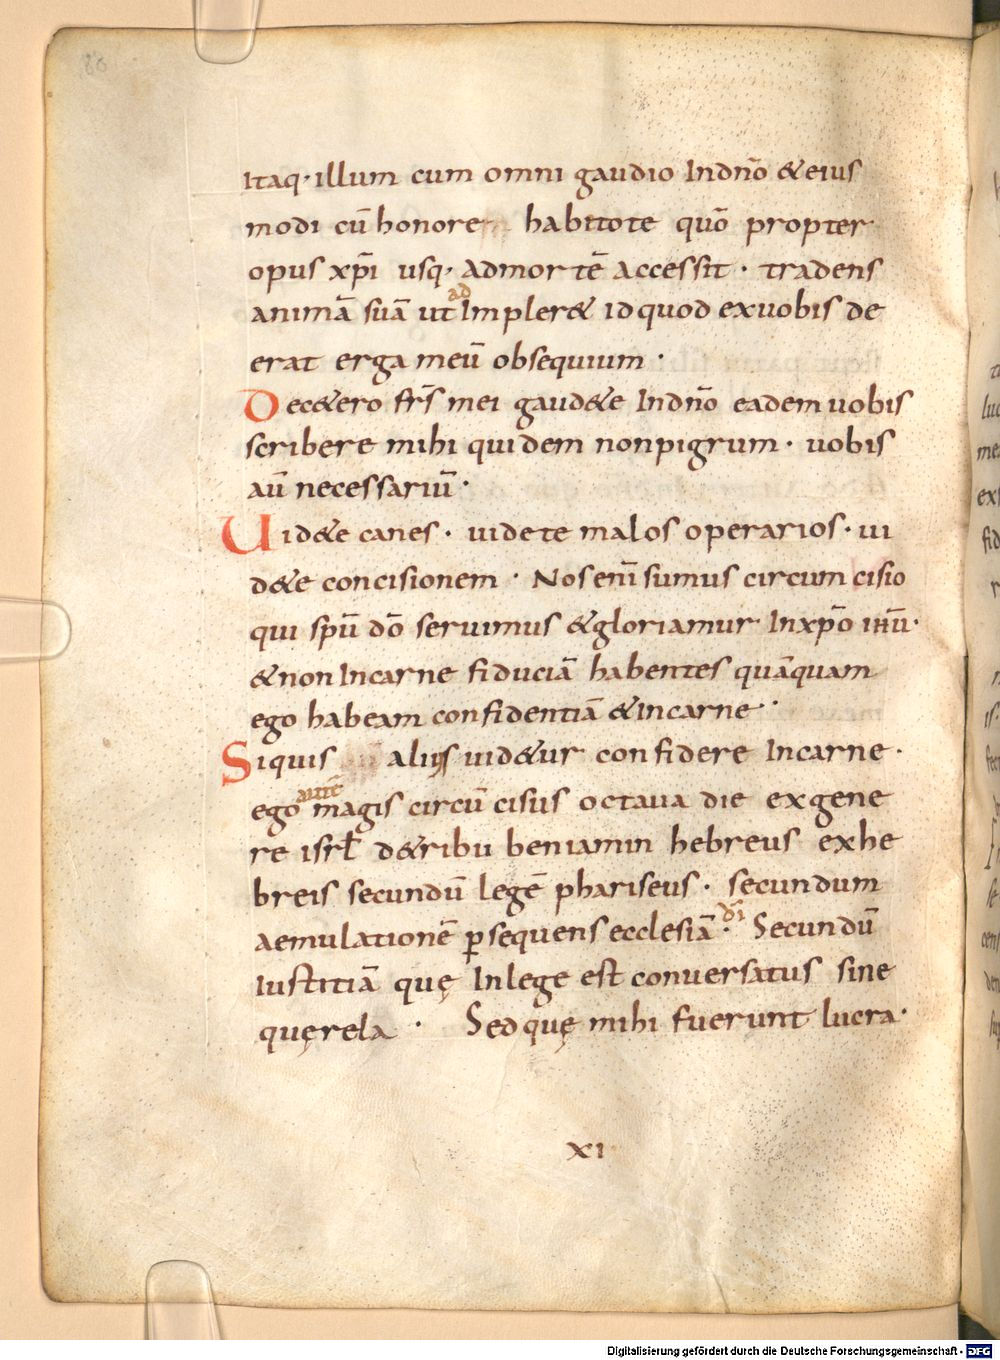 80
itaq· illum cum omni gaudio Indnō &eius
modi cū honore habitote quō propter
opus xp̄i usq· admortē accessit · tradens
animā suā ut ad Impler& id quod exuobis de
erat erga meū obsequium ·
Dec&ero frs̄ mei gaud&e Indnō eadem uobis
scribere mihi quidem nonpigrum · uobis
aū necessariū ·
Uid&e canes · uidete malos operarios · ui
d&e concisionem · Nos enī sumus circumcisio
qui spū dō seruimus &gloriamur Inxp̄o ihū ·
&non Incarne fiduciā habentes quāquam
ego habeam confidentiā &Incarne ·
Siquis alius uid&ur confidere Incarne ·
ego autē magis circūcisus octaua die exgene
re isrl̄ d&ribu beniamin hebreus exhe
breis secundū legē phariseus · secundum
aemulationē ꝑsequens ecclesiā dī · Secundū
iustitiā quę Inlege est conuersatus sine
quęrela · Sed quę mihi fuerunt lucra ·
XI
Digitalisierung gefördert durch die Deutsche Forschungsgemeinschaft - DFG